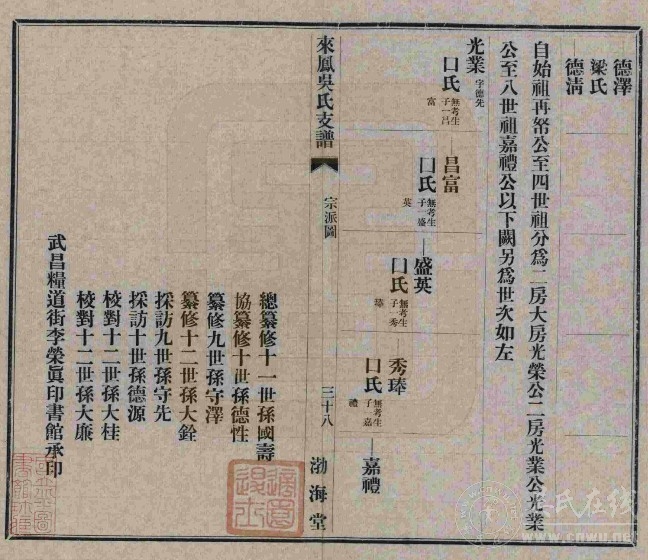 德澤
梁氏
德淸
自始祖再帑公至四世祖分爲二房大房光榮公二房光業公光業
公至八世祖嘉禮公以下闕另爲世次如左
光業 字德先
口氏 無考生子一昌富
昌富
口氏 無考生子一盛英
盛英
口氏 無考生子一秀琫
秀琫
口氏 無考生子一嘉禮
嘉禮
來鳳吳氏支譜
宗派圖
三十八
渤海堂
總纂修十一世孫國壽
協纂修十世孫德性
纂修九世孫守澤
纂修十二世孫大銓
採訪九世孫守先
採訪十世孫德源
校對十二世孫大桂
校對十二世孫大廉
武昌糧道街李榮眞印書館承印
氏在线
www.cnwu.net